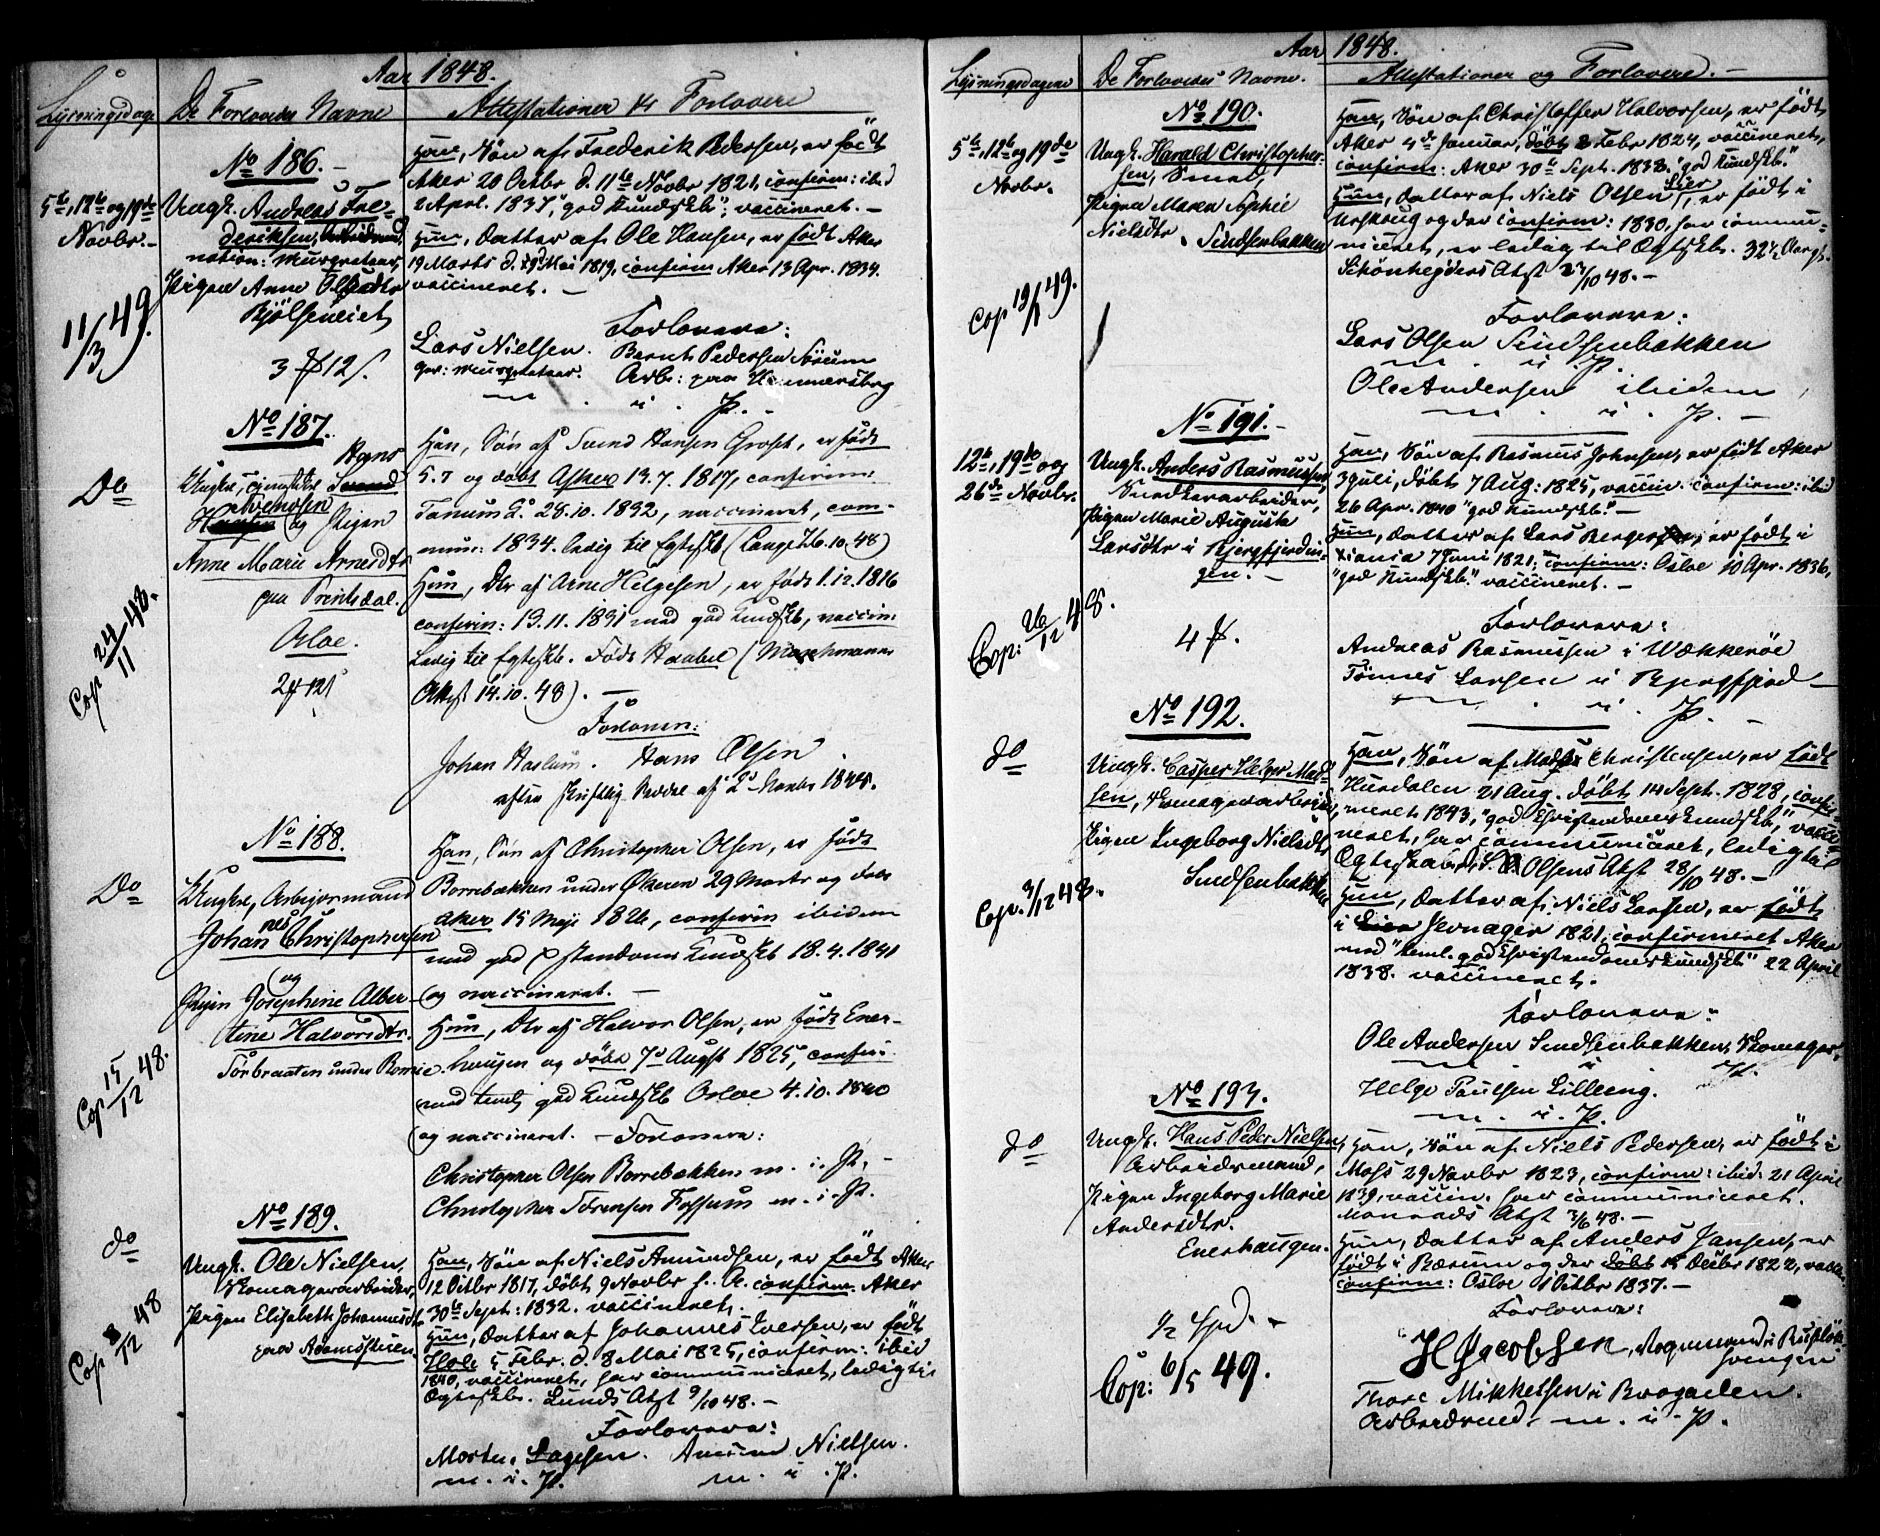 Aar 1848.
Lysningsdage
De Forlovedes Navne
Attestationer & Forlovere
No 186.
5te, 12te og 19de
Novbr.
Ungk. Andreas Fre-
deriksen,
Pigen Anne Olsdtr
Kjölseneiet
11/3 49.
3 12
Han, Sön af Frederik Pedersen, er födt
Aker 20 Octbr d. 11te Novbr 1821, confirm: ibid
2 Apr. 1837, "god Kundskb", vaccineret. —
Hun, Datter af Ole Hansen, er födt Aker
19 Marts d. 19 Mai 1819, confirm Aker 13 Apr. 1834.
vaccineret. —
Forlovere:
Lars Nielsen. Bernt Pedersen Sörum
Arb: paa Hammersborg
m. i. P. —
No 187.
Do
Hans
Svend
Svendsen
og Pigen
Anne Marie Arnesdtr
paa Prindsdal.
Osloe.
Cop 24/11 48.
2 12
Han, Sön af Svend Hansen Groset, er födt
5.7 og döbt Asker 13.7. 1817, confirm:
Tanum K. 28.10.1832, vaccineret, com-
mun: 1834. ledig til Egteskb (Lange 26.10.48)
Hun, Dtr af Arne Helgesen, er födt 1.12.1816
confirm: 13.11.1831 med god Kundskb, vaccin:
Ledig til Egteskb. Födt Haabel (Maschmanns
Attst 14.10.48). —
Forlovere:
Johan Haslum. Hans Olsen
efter skriftlig af 2 Novbr 1848.
No 188.
Do
Ungkl, Arbejdsmand
Johannes Christophersen
og
Pigen Josephine Alber-
tine Halvorsdtr.
Torbraaten under
Cop 15/12 48.
Han, Sön af Christopher Olsen, er födt
Borrebækken under Ökeren 29 Marts og döbt
Aker 15 Maji 1826, confirm ibidem
med god Xstendoms Kundskb 18.4.1841
og vaccineret. —
Hun, Dtr af Halvor Olsen, er födt Ener-
haugen og döbt 7d Augst 1825, confir:
med temlg god Kundskb Osloe 4.10.1840
og vaccineret. — Forlovere:
Christopher Olsen Borrebækken m. i. P. —
Christopher Sörensen Fossum m. i. P.
No 189.
do
Ungk. Ole Nielsen,
Komagerarbeider,
Pigen Elisabeth Johannesdtr
paa Adamsstuen.
Cop 8/12 48
Han, Sön af Niels Amundsen, er födt Aker
12 Octbr 1817, döbt 9 Novbr s. A. confirm. Aker
30te Sept: 1832. vaccineret.
Hun, Datter af Johannes Iversen, er födt
Hole 5 Febr. d. 8 Mai 1825, confirm: ibid
1840, vaccineret, har communiceret, ledig til
Egteskb. Lunds Atst 9/10 48. —
Forlovere:
Morten Lagesen. Amund Nielsen.
m. i. P. m. i. P.
Aar 1848.
Lysningsdagene
De Forlovedes Navne.
Attestationer og Forlovere. —
No 190.
5te, 12te og 19de
Novbr.
Ungk. Harald Christopher-
sen, Smed,
Pigen Maren Sophie
Nielsdtr. Sindsenbakken
Cop 19/1 49.
Han, Sön af Christoffer Halvorsen, er födt
Aker 4de Januar, döbt 8 Febr 1824, vaccineret,
confirm: Aker 30te Sept. 1838. "god Kundskb."
Hun, Datter af Niels Olsen Lier, er födt i
Urskoug og der confirm: 1830, har commu-
niceret, er ledig til Egteskb. 32½ Aar gl.
Schönheyders Atst 27/10 48. —
Forlovere:
Lars Olsen Sindsenbakken
m. i. P.
Ole Andersen ibidem
m. i. P. —
No 191. —
12te, 19de og
26de Novbr.
Ungk. Anders Rasmussen,
Snedkerarbeider,
Pigen Marie Auguste
Larsdtr i Bjergfjerdin-
gen. —
Cop: 26/12 48.
4
Han, Sön af Rasmus Johnsen, er födt Aker
3 Juli, döbt 7 Aug: 1825, vaccin. confirm: ibid
26 Apr. 1840 "god Kundskb." —
Hun, Datter af Lars Bergersen, er födt i
Xiania 7 Juni 1821, confirm: Osloe 10 Apr. 1836,
"god Kundskb." vaccineret. —
Forlovere:
Andreas Rasmussen i Wækkeröe
Tönnes Larsen i Bjergfjerd —
m. i. P. —
No 192.
do
Ungk. Casper Helger Mad-
sen, Komagerarbeider,
Pigen Ingeborg Nielsdtr
Sindsenbakken
Cop. 3/12 48.
Han, Sön af Mads Christensen, er födt
Hurdalen 21 Aug. döbt 14 Sept. 1828, confir-
meret 1843, "god Christendomskundskb," vacci-
neret, har communiceret, ledig til
Egteskab, S. Olsens Atst 28/10 48. —
Hun, Datter af Niels Larsen, er födt
i Jevnager 1821, confirmeret Aker
med "teml. god Christendomskundskb" 22 April
1838. vaccineret.
Forlovere:
Ole Andersen Sindsenbakken, Komager,
m. i. P.
Helge Paulsen Lilleeng.
m. i. P.
No 193.
do
Ungk. Hans Peder Nielsen,
Arbeidsmand,
Pigen Ingeborg Marie
Andersdtr.
Enerhaugen.
½ Spd. —
Cop: 6/5 49.
Han, Sön af Niels Pedersen, er födt i
Moss 29 Novbr 1823, confirm: ibid: 21 April
1839, vaccin. har communiceret.
Monrads Atst 3/6 48. —
Hun, Datter af Anders Jansen, er
födt i Bærum og der döbt 15 Decbr 1822, vacc.
confirm: Osloe 1 Octbr 1837. —
Forlovere:
H Jacobsen, Vognmand i Ruslök-
hougen
Thore Mikkelsen i Brogaden.
Arbeidsmd. m. i. P.